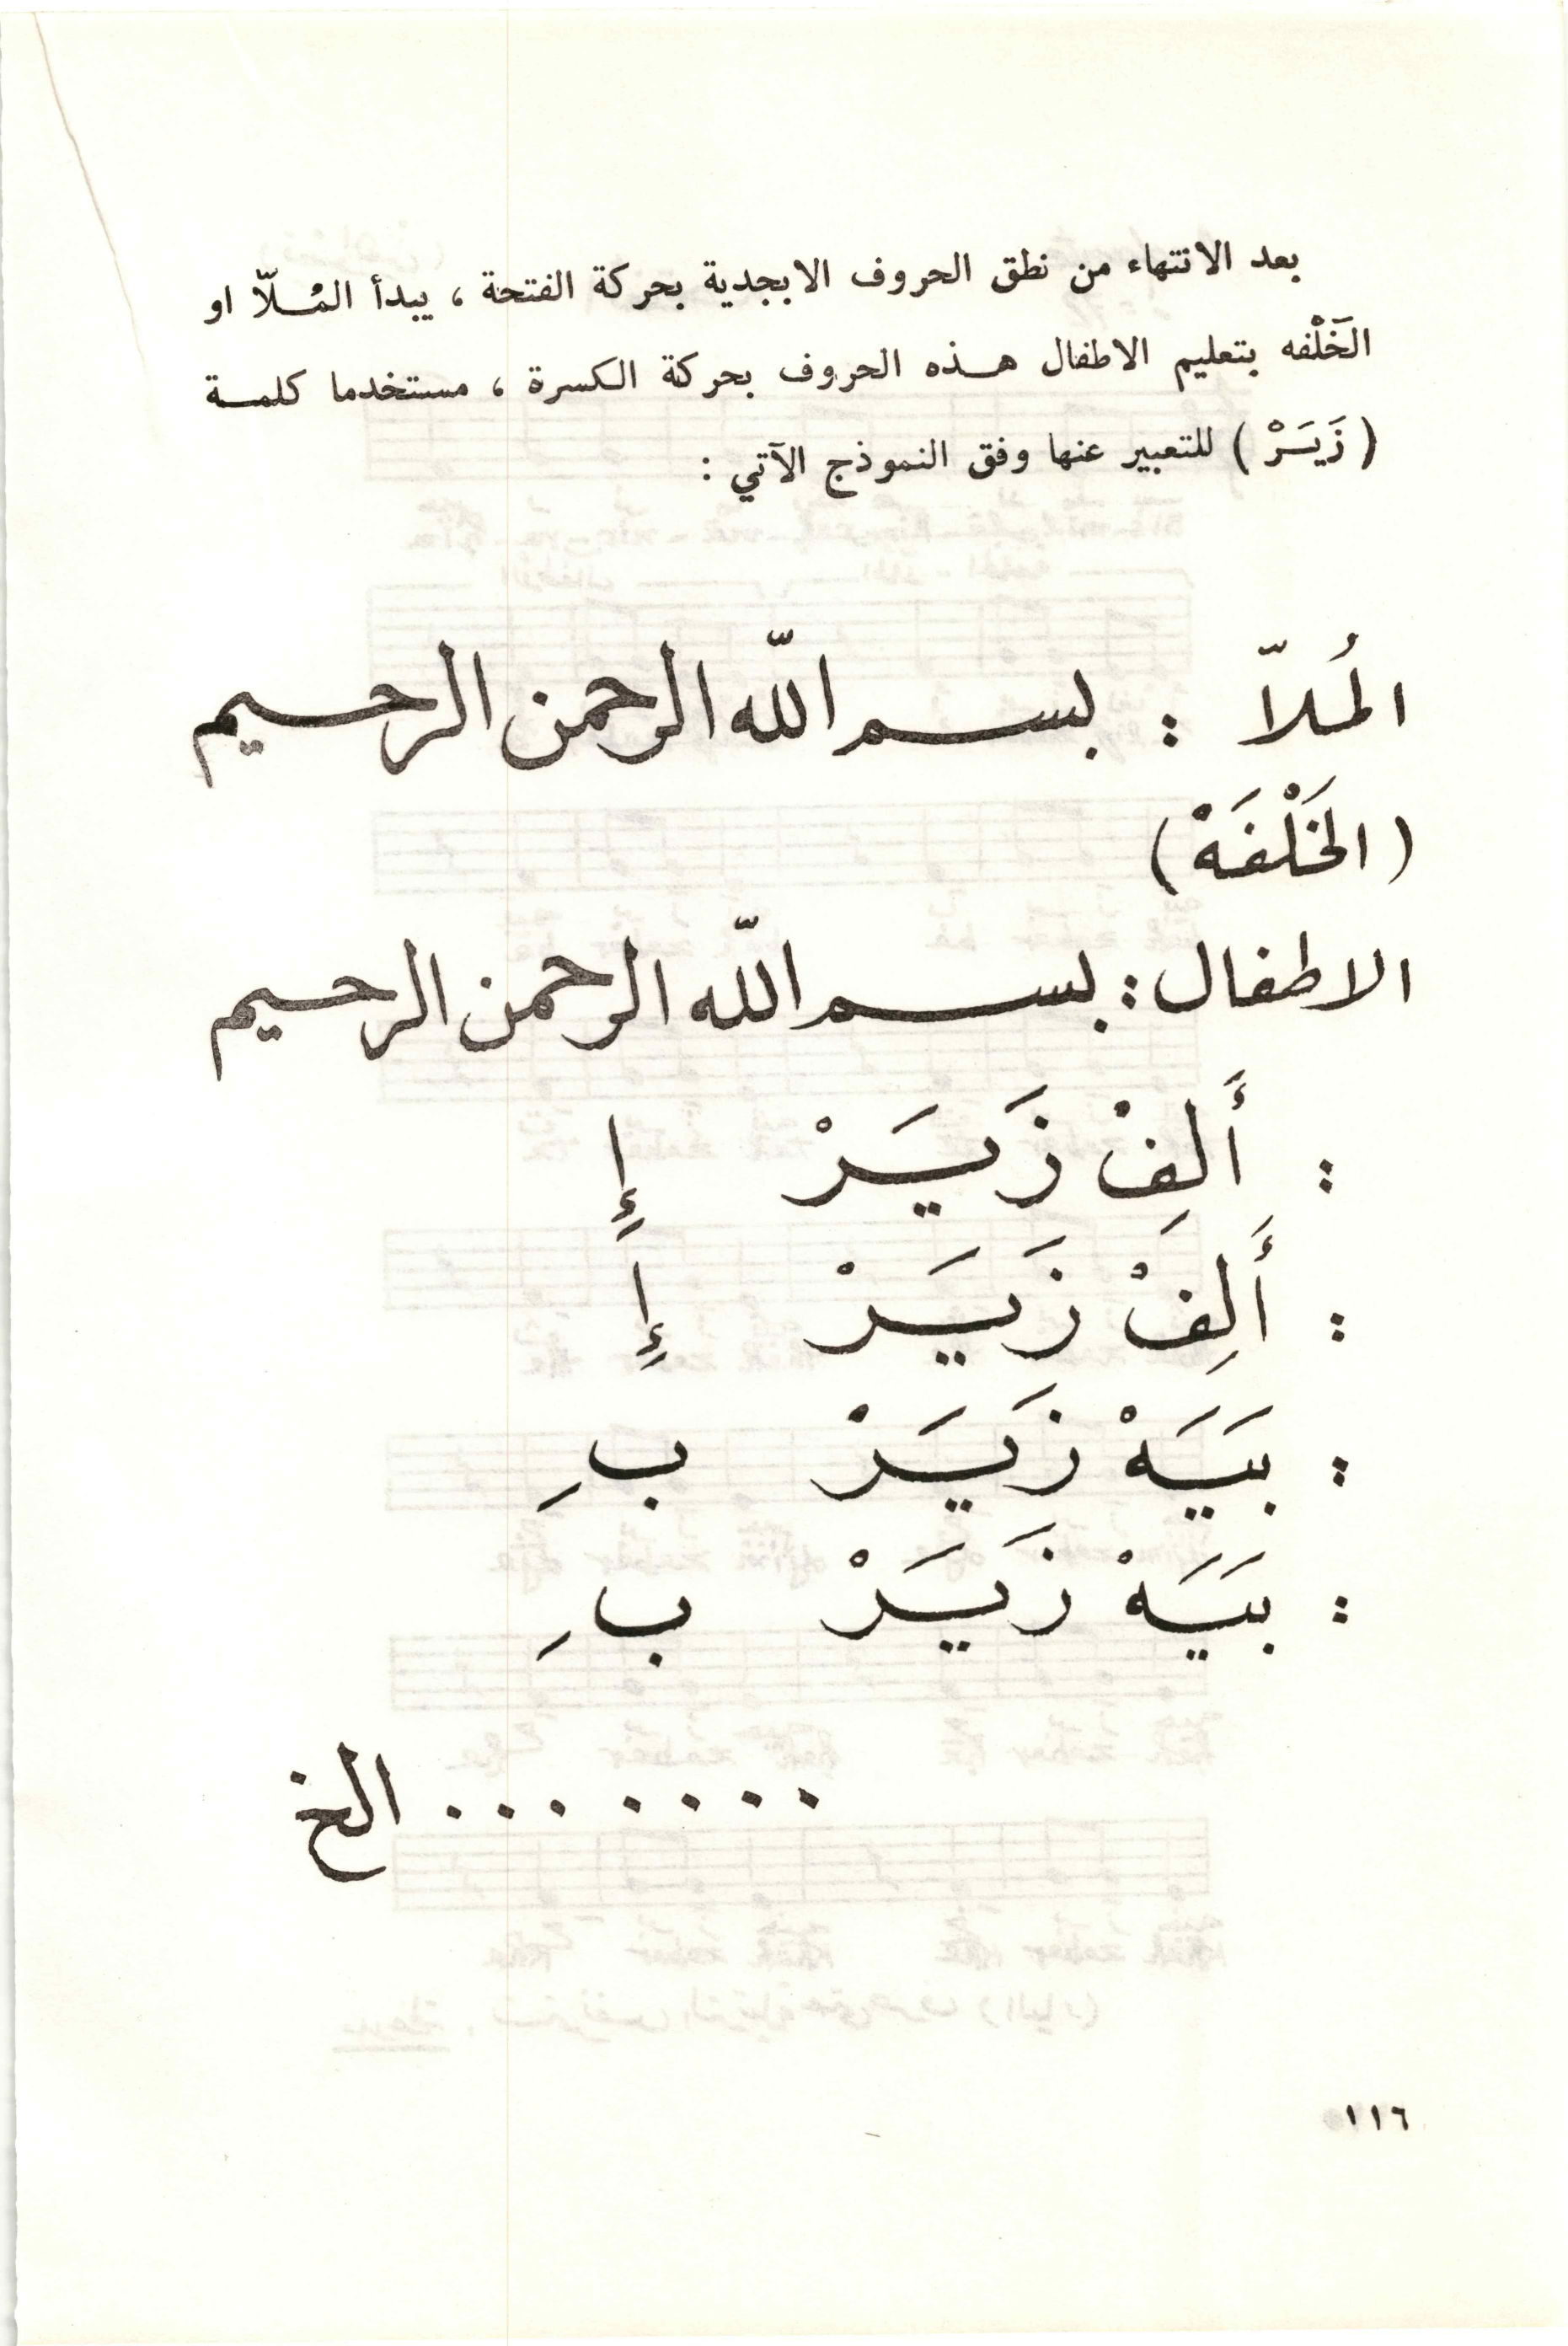 بعد الانتهاء من نطق الحروف الابجدية بحركة الفتحة ، يبدأ المُلاّ او
الخَلْفه بتعليم الاطفال هذه الحروف بحركة الكسرة ، مستخدما كلمة
( زَيَرْ ) للتعبير عنها وفق النموذج الآتي :
المُلاّ : بسم اللّه الرحمن الرحيم
( الخَلْفَهْ )
الاطفال : بسم اللّه الرحمن الرحيم
: أَلِفْ زَيَرْ إِ
: أَلِفْ زَيَرْ إِ
: بَيَهْ زَيَرْ بِ
: بَيَهْ زَيَرْ بِ
. . . . . . . الخ
١١٦